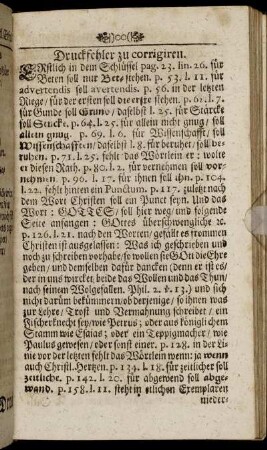 Druckfehler zu corrigiren.
ERstlich in dem Schlüssel pag. 23. lin. 26. für
Beten soll nur Bet- stehen. p. 53. l. 11. für
advertendis soll avertendis. p. 56. in der letzten
Riege / für der ersten soll die erste stehen. p. 61. l. 7.
für Gunde soll Grund / daselbst l. 25. für Stärcke
soll Stücke. p. 64. l. 25. für allein nicht gnug / soll
allein gnug. p. 69. l. 6. für Wissenschafft, soll
Wissenschafften / daselbst l. 8. für beruhet / soll be-
ruhen. p. 71. l. 25. fehlt das Wörtlein er: wolte
er diesen Rath. p. 80. l. 21. für vernehmen soll vor-
nehmen. p. 96. l. 17. für ihnen soll ihn. p. 104.
l. 22. fehlt hinten ein Punctum. p. 117. zuletzt nach
dem Wort Christen soll ein Punct seyn. Und das
Wort: GOTTES / soll hier weg / und folgende
Seite anfangen: GOttes überschwenglicher ꝛc.
p. 126. l. 21. nach den Worten / gefällt es frommen
Christen ist ausgelassen: Was ich geschrieben und
noch zu schreiben vorhabe / so wollen sie GOtt die Ehre
geben / und demselben dafür dancken (denn er ist es /
der in uns wircket beide das Wollen und das Thun /
nach seinem Wolgefallen. Phil. 2. ℣. 13.) und sich
nicht darum bekümmern / ob derjenige / so ihnen was
zur Lehre / Trost und Vermahnung schreibet / ein
Fischerknecht sey / wie Petrus; oder aus königlichem
Stamm wie Esaias; oder ein Teppigmacher / wie
Paulus gewesen / oder sonst einer. p. 128. in der Li-
nie vor der letzten fehlt das Wörtlein wenn: ja wenn
auch Christl. Hertzen. p. 134. l. 18. für zeitlicher soll
zeitliche. p. 142. l. 20. für abgewend soll abge-
wand. p. 158. l. 11. steht in etlichen Exemplaren
nieder-